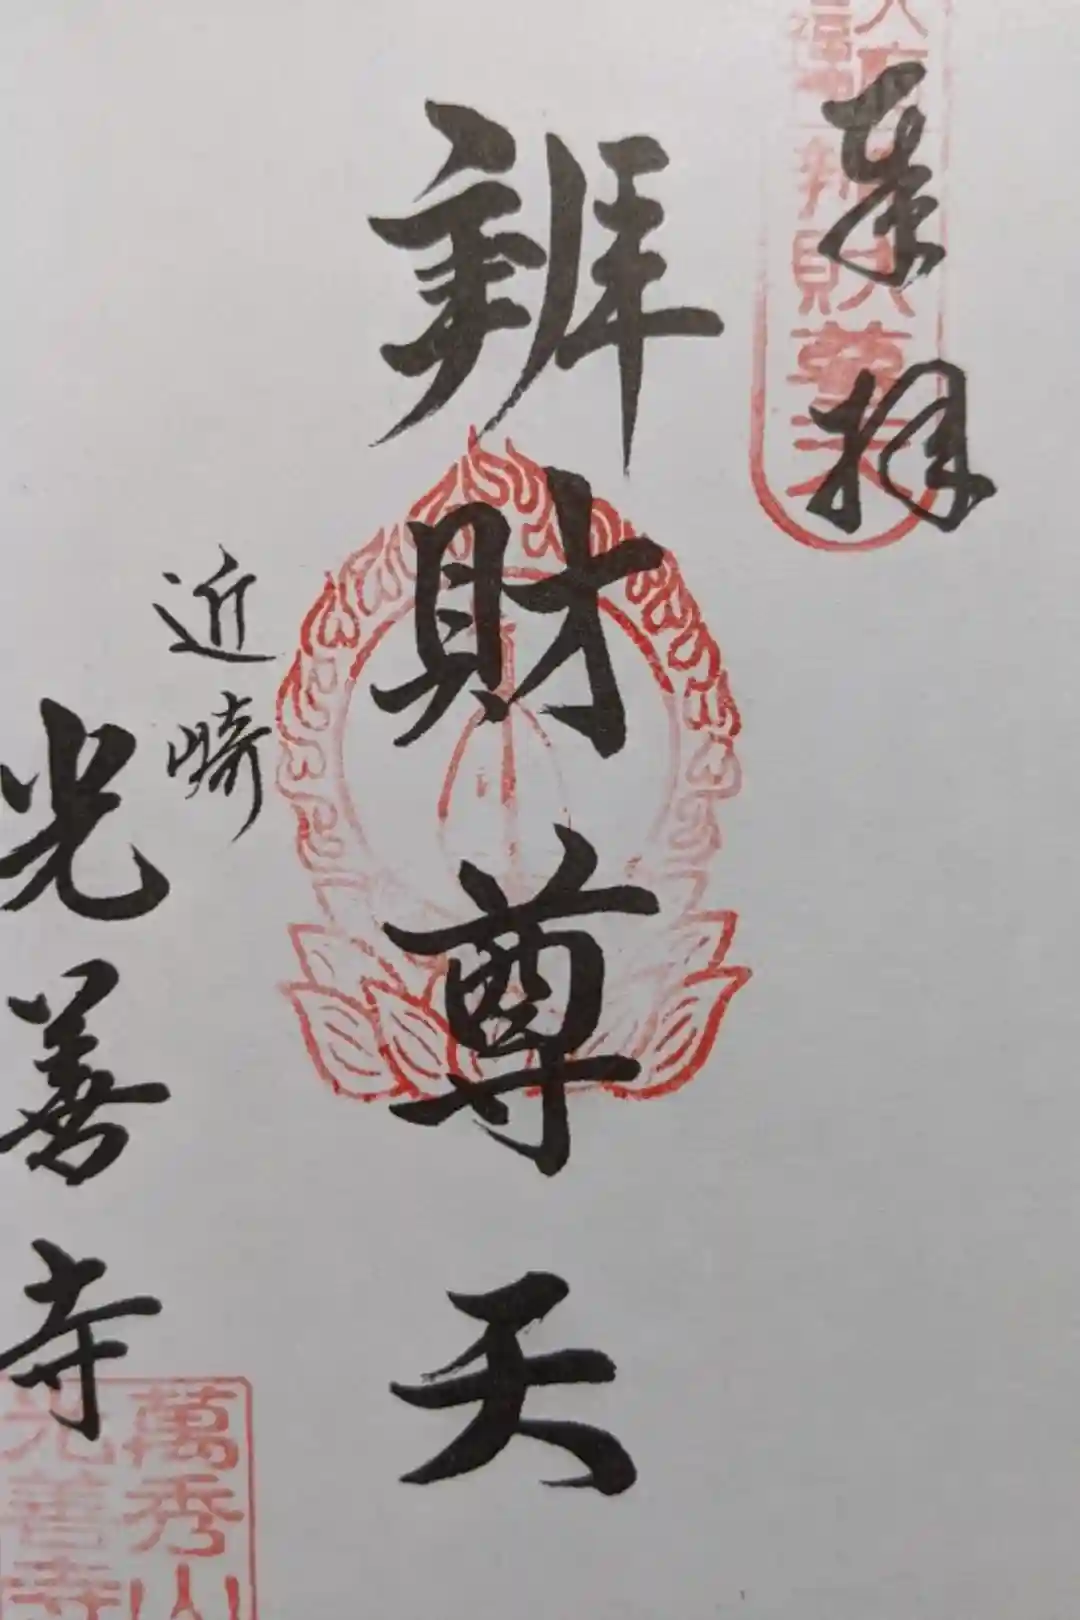 奉拝
辨財尊天
近崎
光善寺
辨財尊天
萬秀山
光善寺